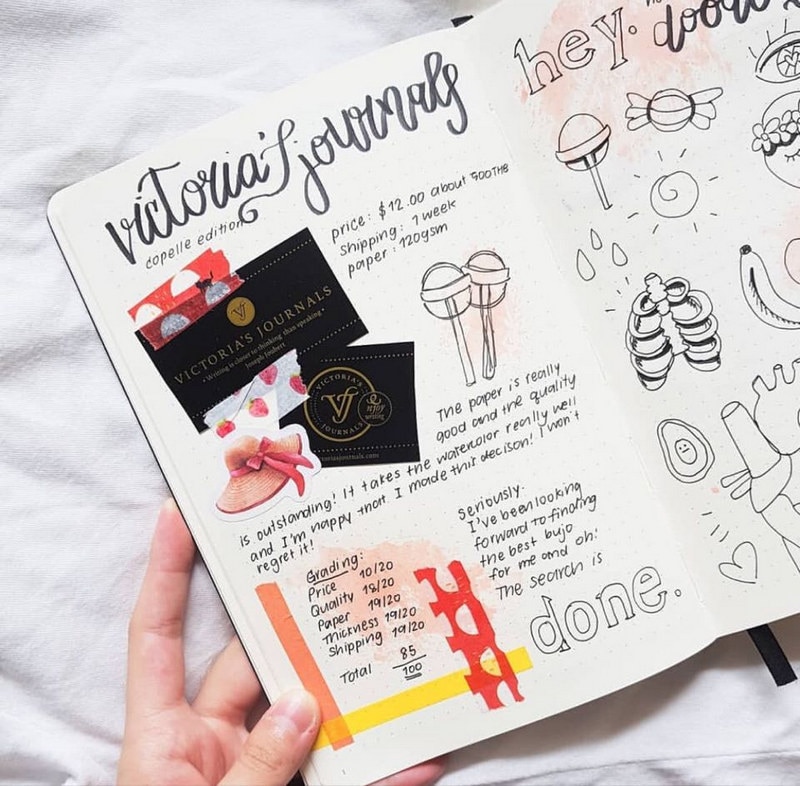 victoria's journals
copelle edition
price: $12.00 about 500THB
shipping: 1 week
paper: 120gsm
VJ
VICTORIA'S JOURNALS
• Writing is closer to thinking than speaking •
Joseph Joubert
VICTORIA'S
VJ
JOURNALS
Enjoy
writing
toriasjournals.com
The paper is really
good and the quality
is outstanding! It takes the watercolor really well
and I'm happy that I made this decison! I won't
regret it!
seriously.
I've been looking
forward to finding
the best bujo
for me and oh!
The search is
done.
Grading:
Price 10/20
Quality 18/20
Paper 19/20
Thickness 19/20
Shipping 19/20
Total 85
100
hey.